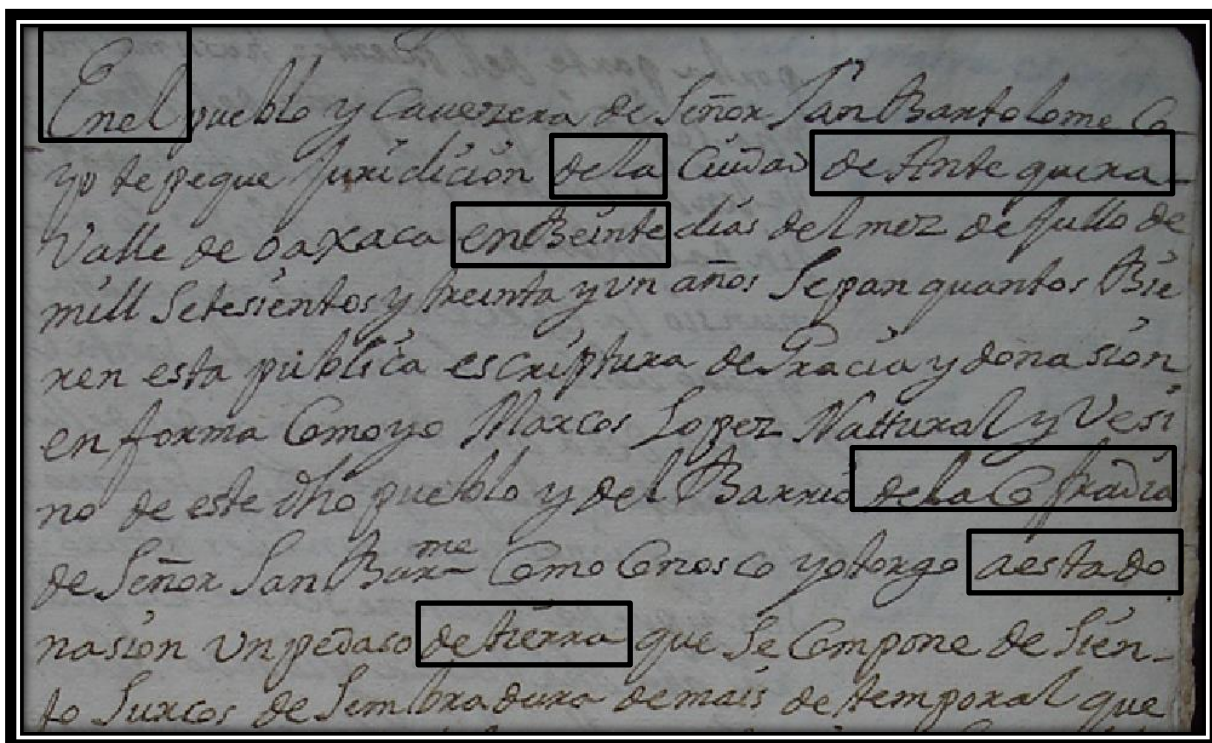 Enel pueblo y Cavezera de Señor San Bartolome Co
yo tepeque Juridición dela Ciudad de Ante quera
Valle de oaxaca enBeinte dias del mez de Jullo de
mill Setesientos y treinta y un años Sepan quantos Bie
ren esta publica escriptura de Gracia y dona sion
en forma Como yo Marcos Lopez Nattural y Vesi
no de este dho pueblo y del Barrio dela Cofradia
de Señor San Barme Como Conosco yotorgo aestado
nasion Un pedaso detierra que Se Compone de Sien
to Surcos de Sembradura demais de temporal que